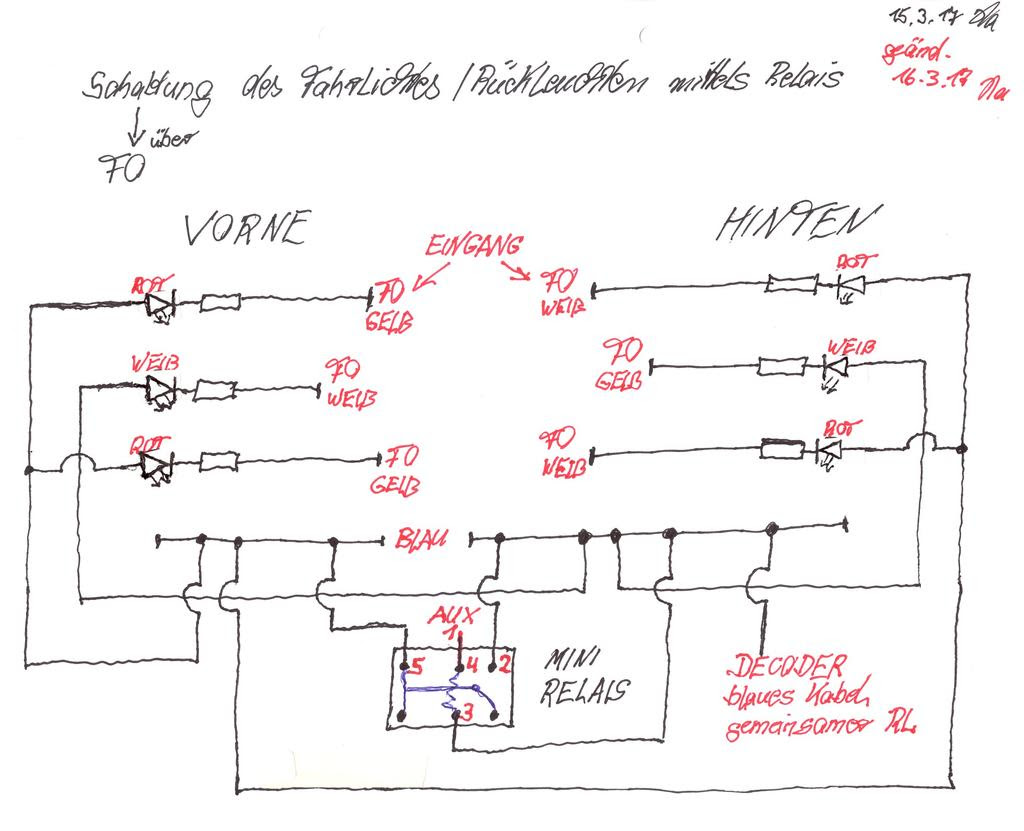 15.3.17 Na
geänd.
16.3.17 Na
Schaltung des Fahrlichtes / Rückleuchten mittels Relais
über
FO
VORNE
HINTEN
EINGANG
ROT
FO
GELB
FO
WEIß
ROT
WEIß
FO
WEIß
FO
GELB
WEIß
ROT
FO
GELB
FO
WEIß
ROT
BLAU
AUX
1
5
4
2
3
MINI
RELAIS
DECODER
blaues Kabel
gemeinsamer RL